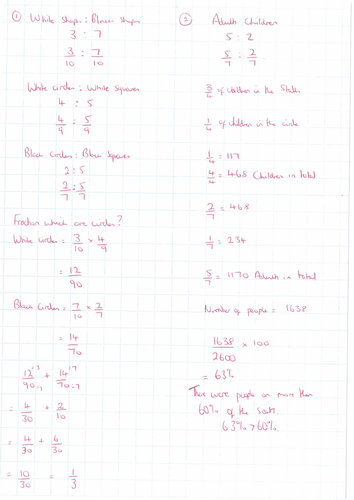 ① White shapes : Black shapes
3 : 7
3/10 : 7/10
White circles : White Squares
4 : 5
4/9 : 5/9
Black Circles : Black Squares
2 : 5
2/7 : 5/7
Fraction which are circles?
White circles = 3/10 × 4/9
= 12/90
Black Circles = 7/10 × 2/7
= 14/70
12÷3/90÷3 + 14÷7/70÷7
= 4/30 + 2/10
= 4/30 + 6/30
= 10/30 = 1/3
② Adults Children
5 : 2
5/7 : 2/7
3/4 of children in the Stalls
1/4 of children in the circle
1/4 = 117
4/4 = 468 Children in total
2/7 = 468
1/7 = 234
5/7 = 1170 Adults in total
Number of people = 1638
1638/2600 × 100
= 63%
There were people on more than
60% of the seats.
63% > 60%.